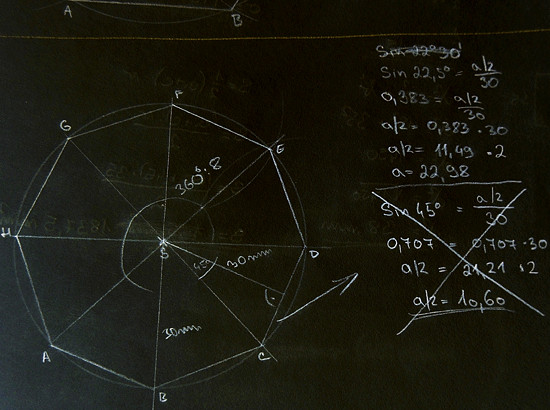 A B
Sin 22°30'
Sin 22,5° = a/2 / 30
0,383 = a/2 / 30
a/2 = 0,383 · 30
a/2 = 11,49 · 2
a = 22,98
Sin 45° = a/2 / 30
0,707 = 0,707 · 30
a/2 = 21,21 · 2
a/2 = 10,60
F
G
E
360° : 8
H
S
D
45°
30mm
30mm
A
C
B